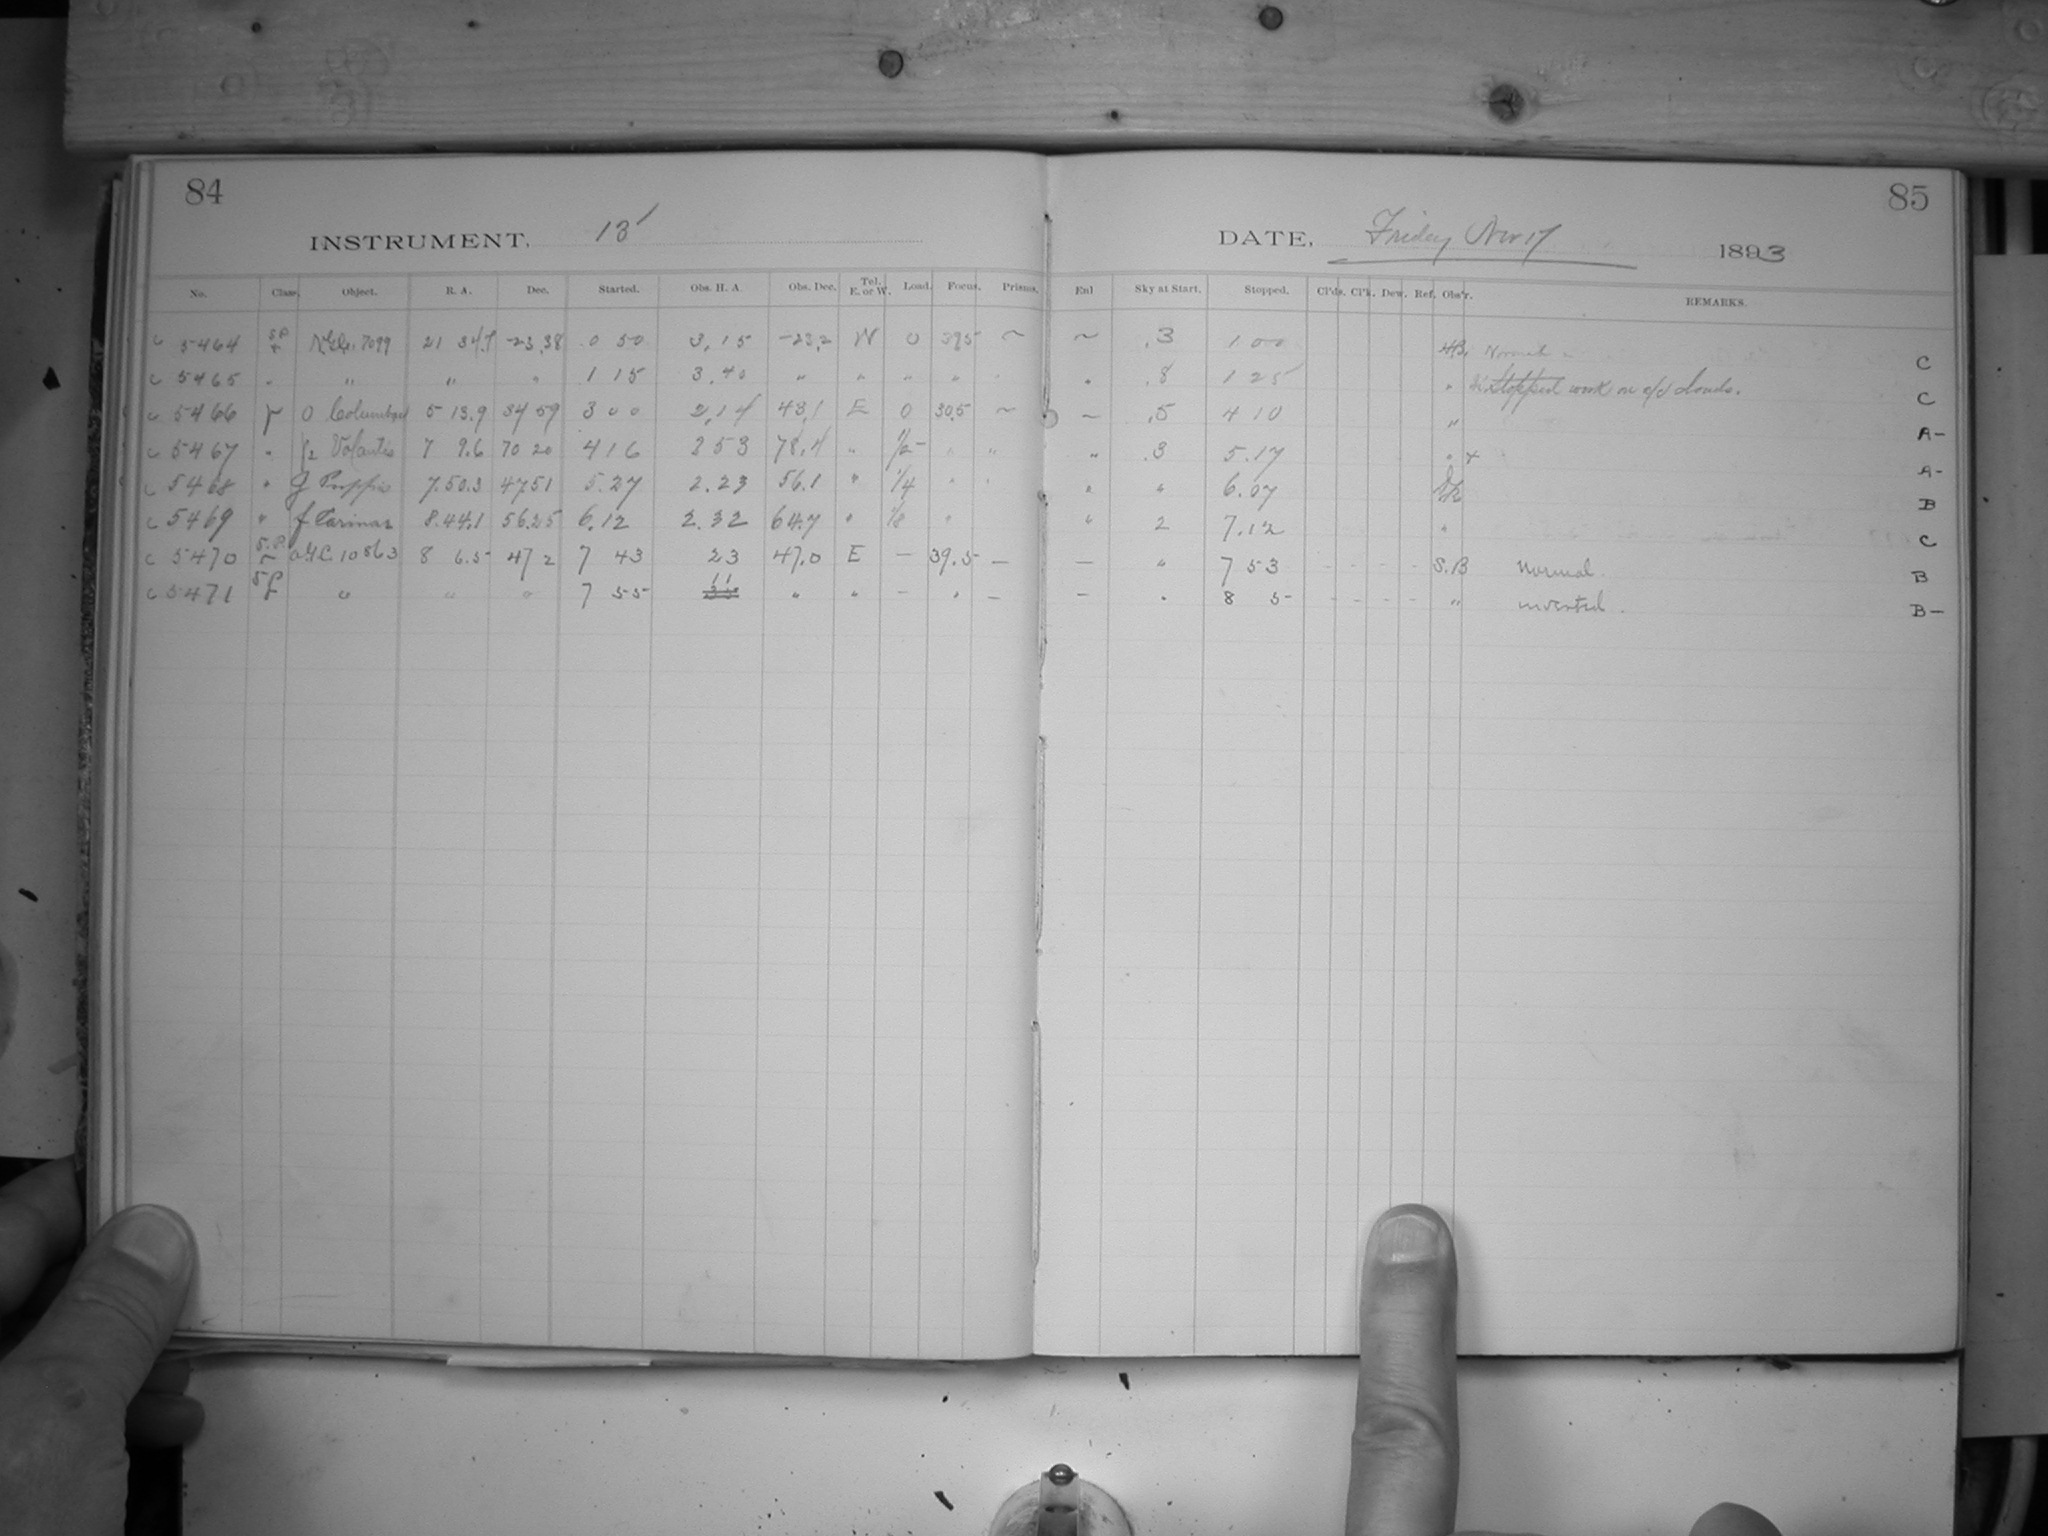 84
INSTRUMENT, 13'
No. Class. Object. R. A. Dec. Started. Obs. H. A. Obs. Dec. Tel. E. or W. Load. Focus. Prisms.
c 5464 S.P. 7099 21 -23.38 0 50 3.15 -23.2 W 0 39.5 ~
c 5465 " " " " 1 15 3.40 " " " "
c 5466 r o Columbae 5 13.9 34 59 3 00 2.14 43.1 E 0 30.5 ~
c 5467 " Volantis 7 9.6 70 20 4 16 2 53 78.4 " 1/2 " "
c 5468 " J Puppis 7.50.3 47 51 5.27 2.23 56.1 " 1/4 " "
c 5469 " f Carinae 8.44.1 56.25 6.12 2.32 64.7 " 1/8 "
c 5470 S.P. 10863 8 6.5 47 2 7 43 23 47.0 E — 39.5 —
c 5471 S.P. " " " 7 55 11 " " — " —
85
DATE, Friday Nov 17 1893
Enl Sky at Start. Stopped. Cl'ds. Cl'k. Dew. Ref. Obs'r. REMARKS.
~ .3 1 00 Normal C
" .8 1 25 " stopped work on a/c clouds. C
~ .5 4 10 " A-
" .3 5.17 " + A-
" " 6.07 B
" 2 7.12 " C
— " 7 53 - - - - S.B Normal. B
— " 8 5 - - - - " inverted. B-